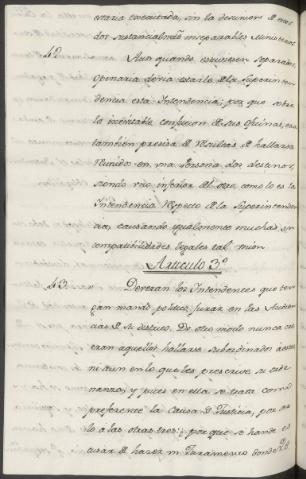 estaria executada, sin la desunion de
dos sustancialmente inseparables Ministerios
42. Aun quando estuviesen separados,
opinaria devia estarlo de la Superinten-
dencia esta Intendencia; por que sobre
la inevitable confusion de sus oficinas, era
tambien precisa de hallarse
Reunidos en una Persona dos destinos,
siendo uno inferior del otro, como lo es la
Intendencia Respecto de la Superintenden-
cia, causando igualmente muchas in-
compatibilidades legales tal union
Articulo 3º
43. Deveran los Intendentes que ten-
gan mando politico, jurar en las Audien-
cias de su distrito. De otro modo nunca cre-
eran aquellos hallarse subordinados à estas
ni aun en lo que les prescrive su orde-
nanza; y pues en ella se trata como
preferente la Causa de Justicia, por
lo à las otras tres; por que se han de es-
cusar de hacer un Juramento donde